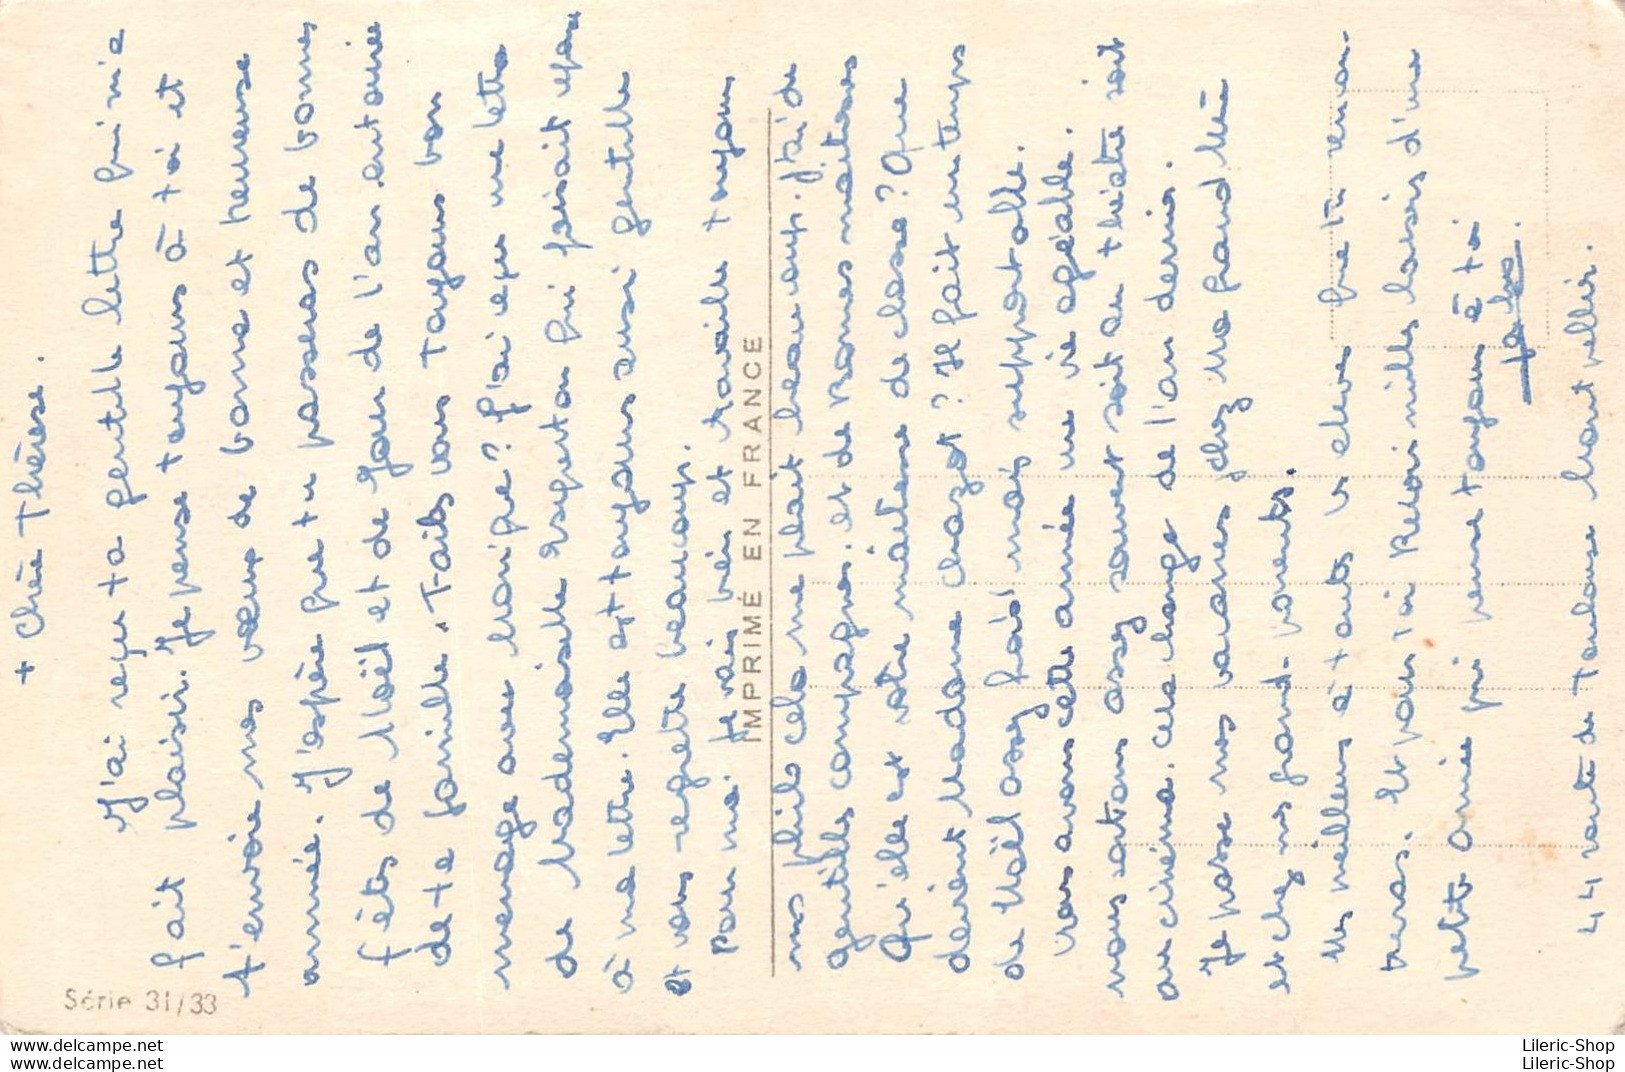 + Chère Thérèse.
J'ai reçu ta gentille lettre qui m'a
fait plaisir. Je pense toujours à toi et
t'envoie mes vœux de bonne et heureuse
année. J'espère que tu passeras de bonnes
fêtes de Noël et de Jour de l'an entourée
de ta famille. Fais vous toujours bon
menage avec Monique? J'ai reçu une lettre
de Mademoiselle qui faisait
à ma lettre. Elle est toujours aussi gentille
et vous regrette beaucoup.
Pour moi je vais bien et travaille toujours
mes piles cela me plait beaucoup. J'ai de
gentilles compagnes. et de bonnes maitresses
Qu'elle est votre maitresse de classe? Que
devient Madame Chazot? Il fait un temps
de Noël assez frais mais supportable.
Nous avons cette année une vie agréable.
nous sortons assez souvent soit au théâtre soit
au cinéma. cela change de l'an dernier.
Je passe mes vacances chez ma grand mère
et chez mes grand-parents.
Mes meilleurs à touts les eleves que tu rencon-
treras. Et pour toi Reçois milles baisers d'une
petite amie qui pense toujours à toi
44 route de Toulouse Montpellier.
IMPRIMÉ EN FRANCE
Série 31/33
www.delcampe.net
www.delcampe.net
Lileric-Shop
Lileric-Shop